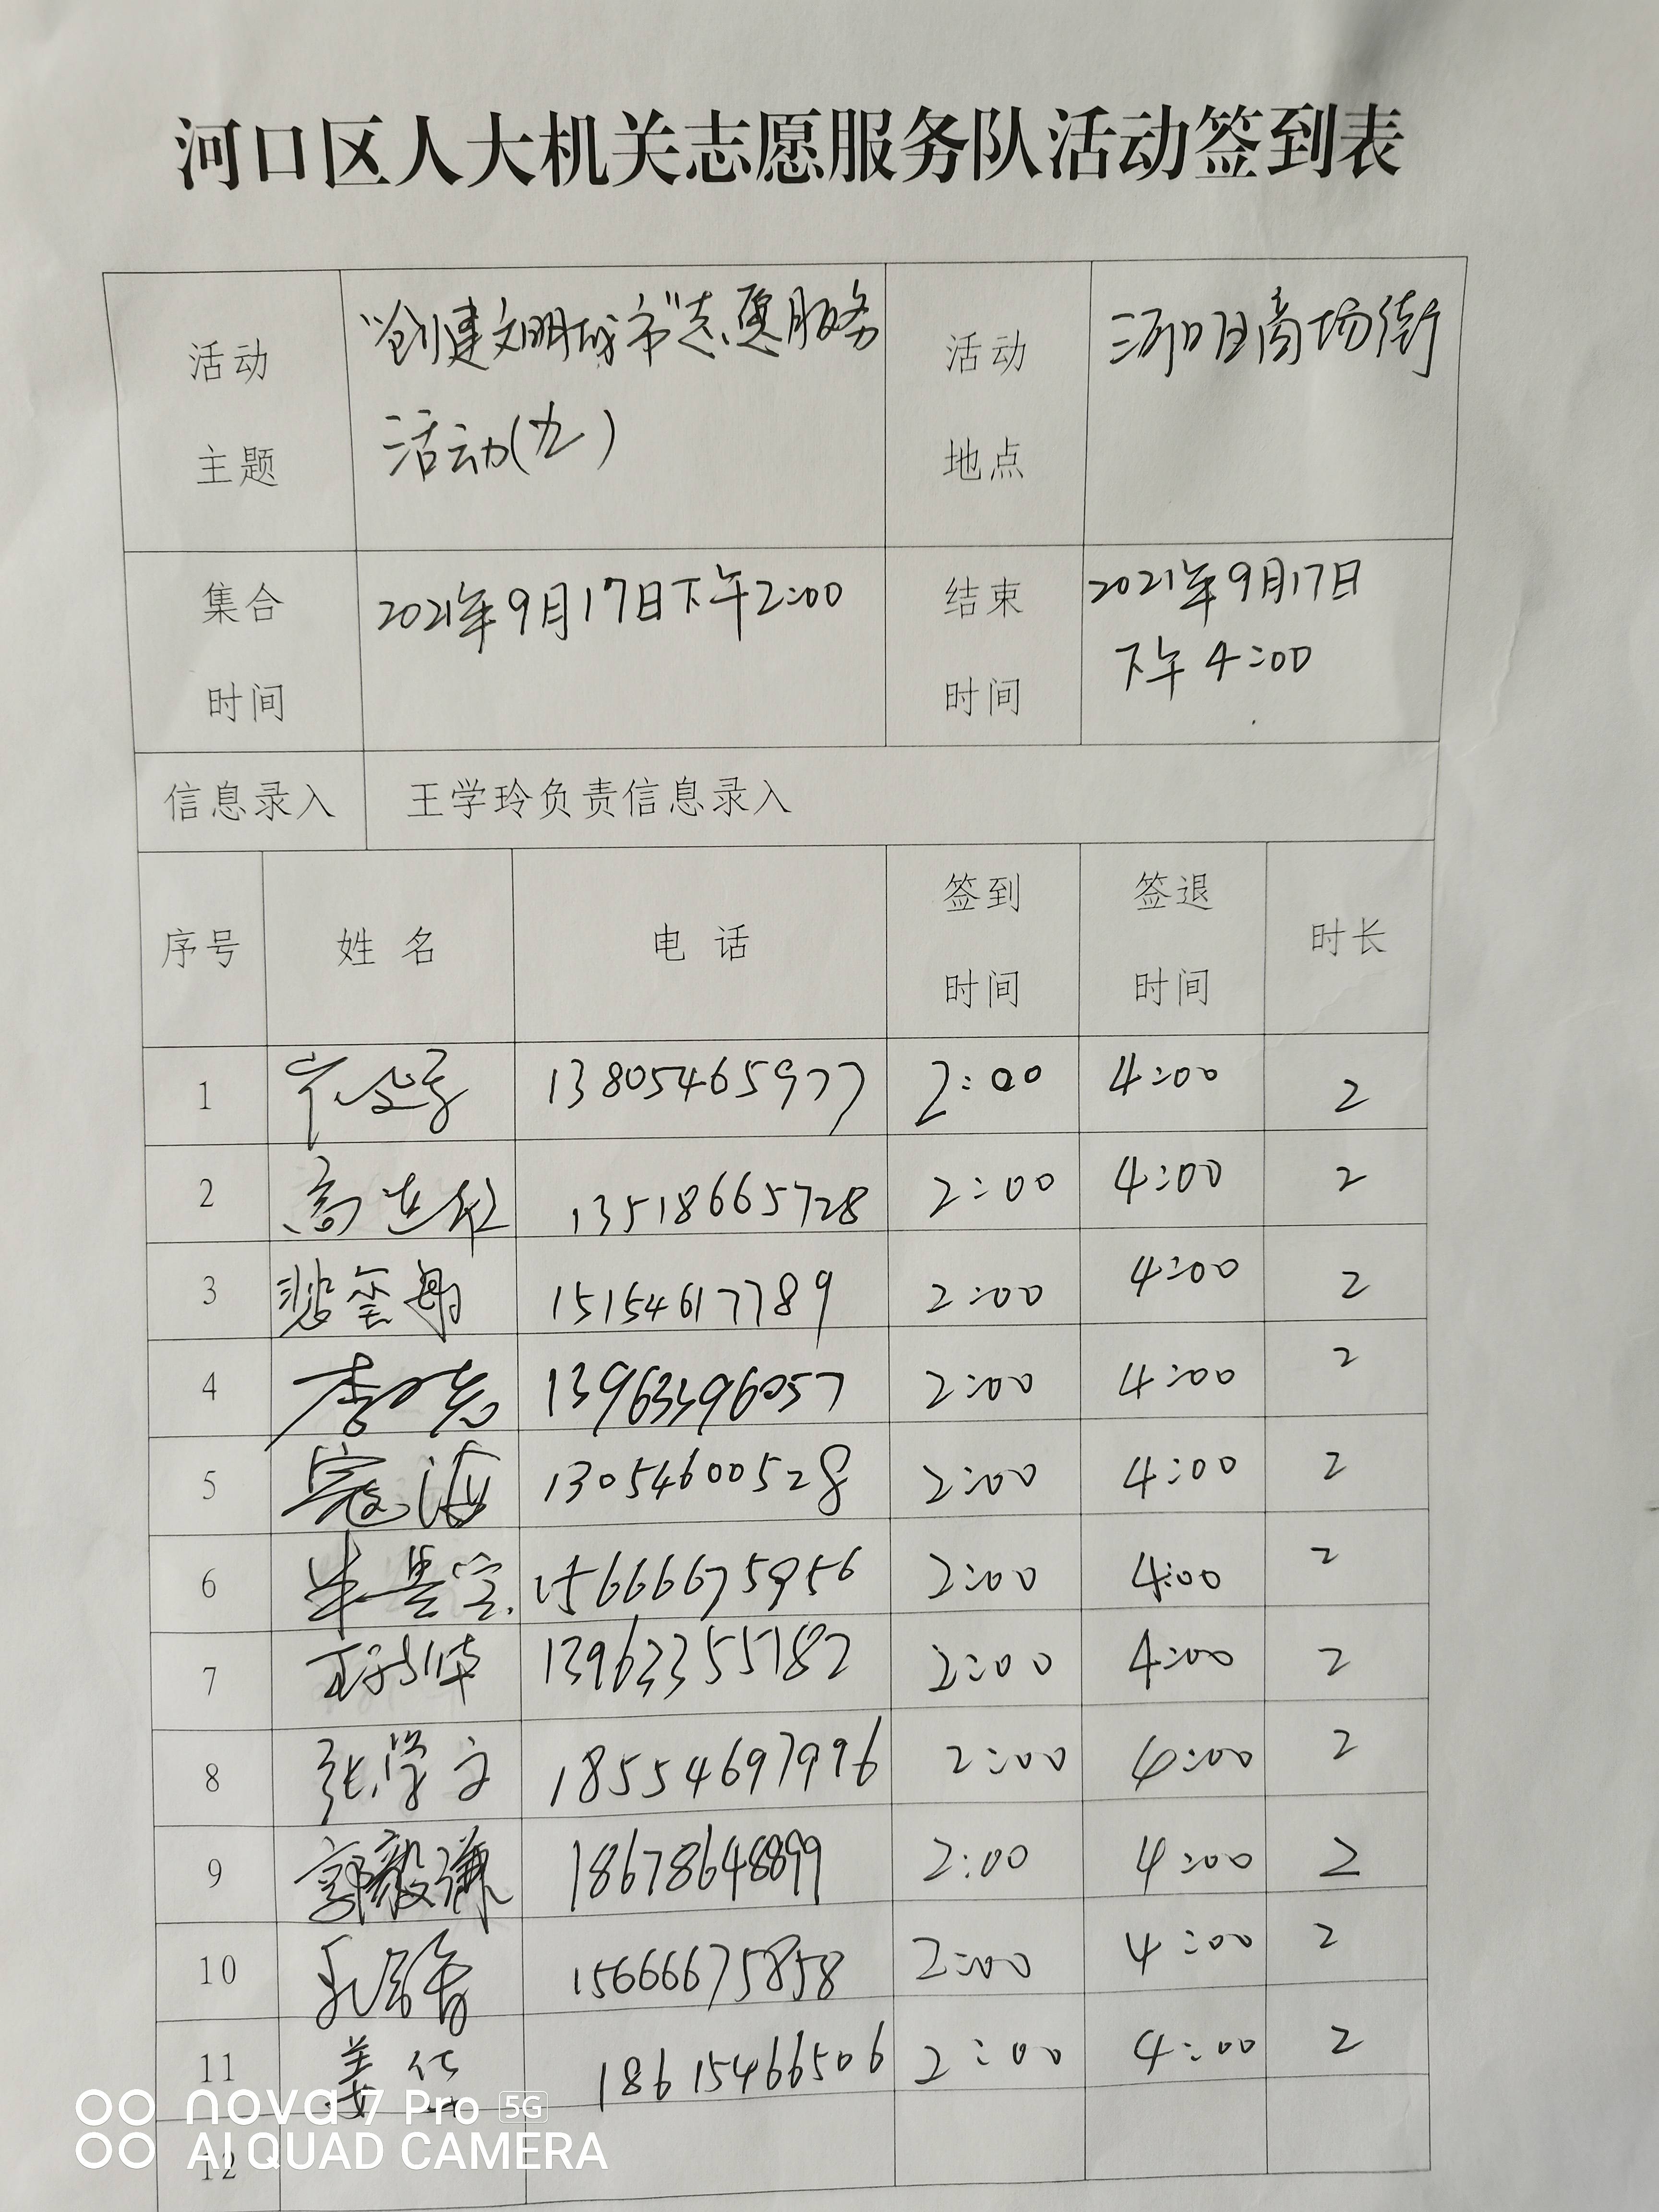 河口区人大机关志愿服务队活动签到表
活动主题 "创建文明城市"志愿服务活动(九) 活动地点 河口日商场街
集合时间 2021年9月17日下午2:00 结束时间 2021年9月17日下午4:00
信息录入 王学玲负责信息录入
序号 姓名 电话 签到时间 签退时间 时长
1 13805465977 2:00 4:00 2
2 高 13518665728 2:00 4:00 2
3 15154617789 2:00 4:00 2
4 李 13963396057 2:00 4:00 2
5 寇海 13054600528 2:00 4:00 2
6 15666675956 2:00 4:00 2
7 13963355782 2:00 4:00 2
8 张学文 18554697996 2:00 4:00 2
9 郭毅谦 18678648899 2:00 4:00 2
10 15666675858 2:00 4:00 2
11 姜 18615466506 2:00 4:00 2
12
nova 7 Pro 5G
AI QUAD CAMERA